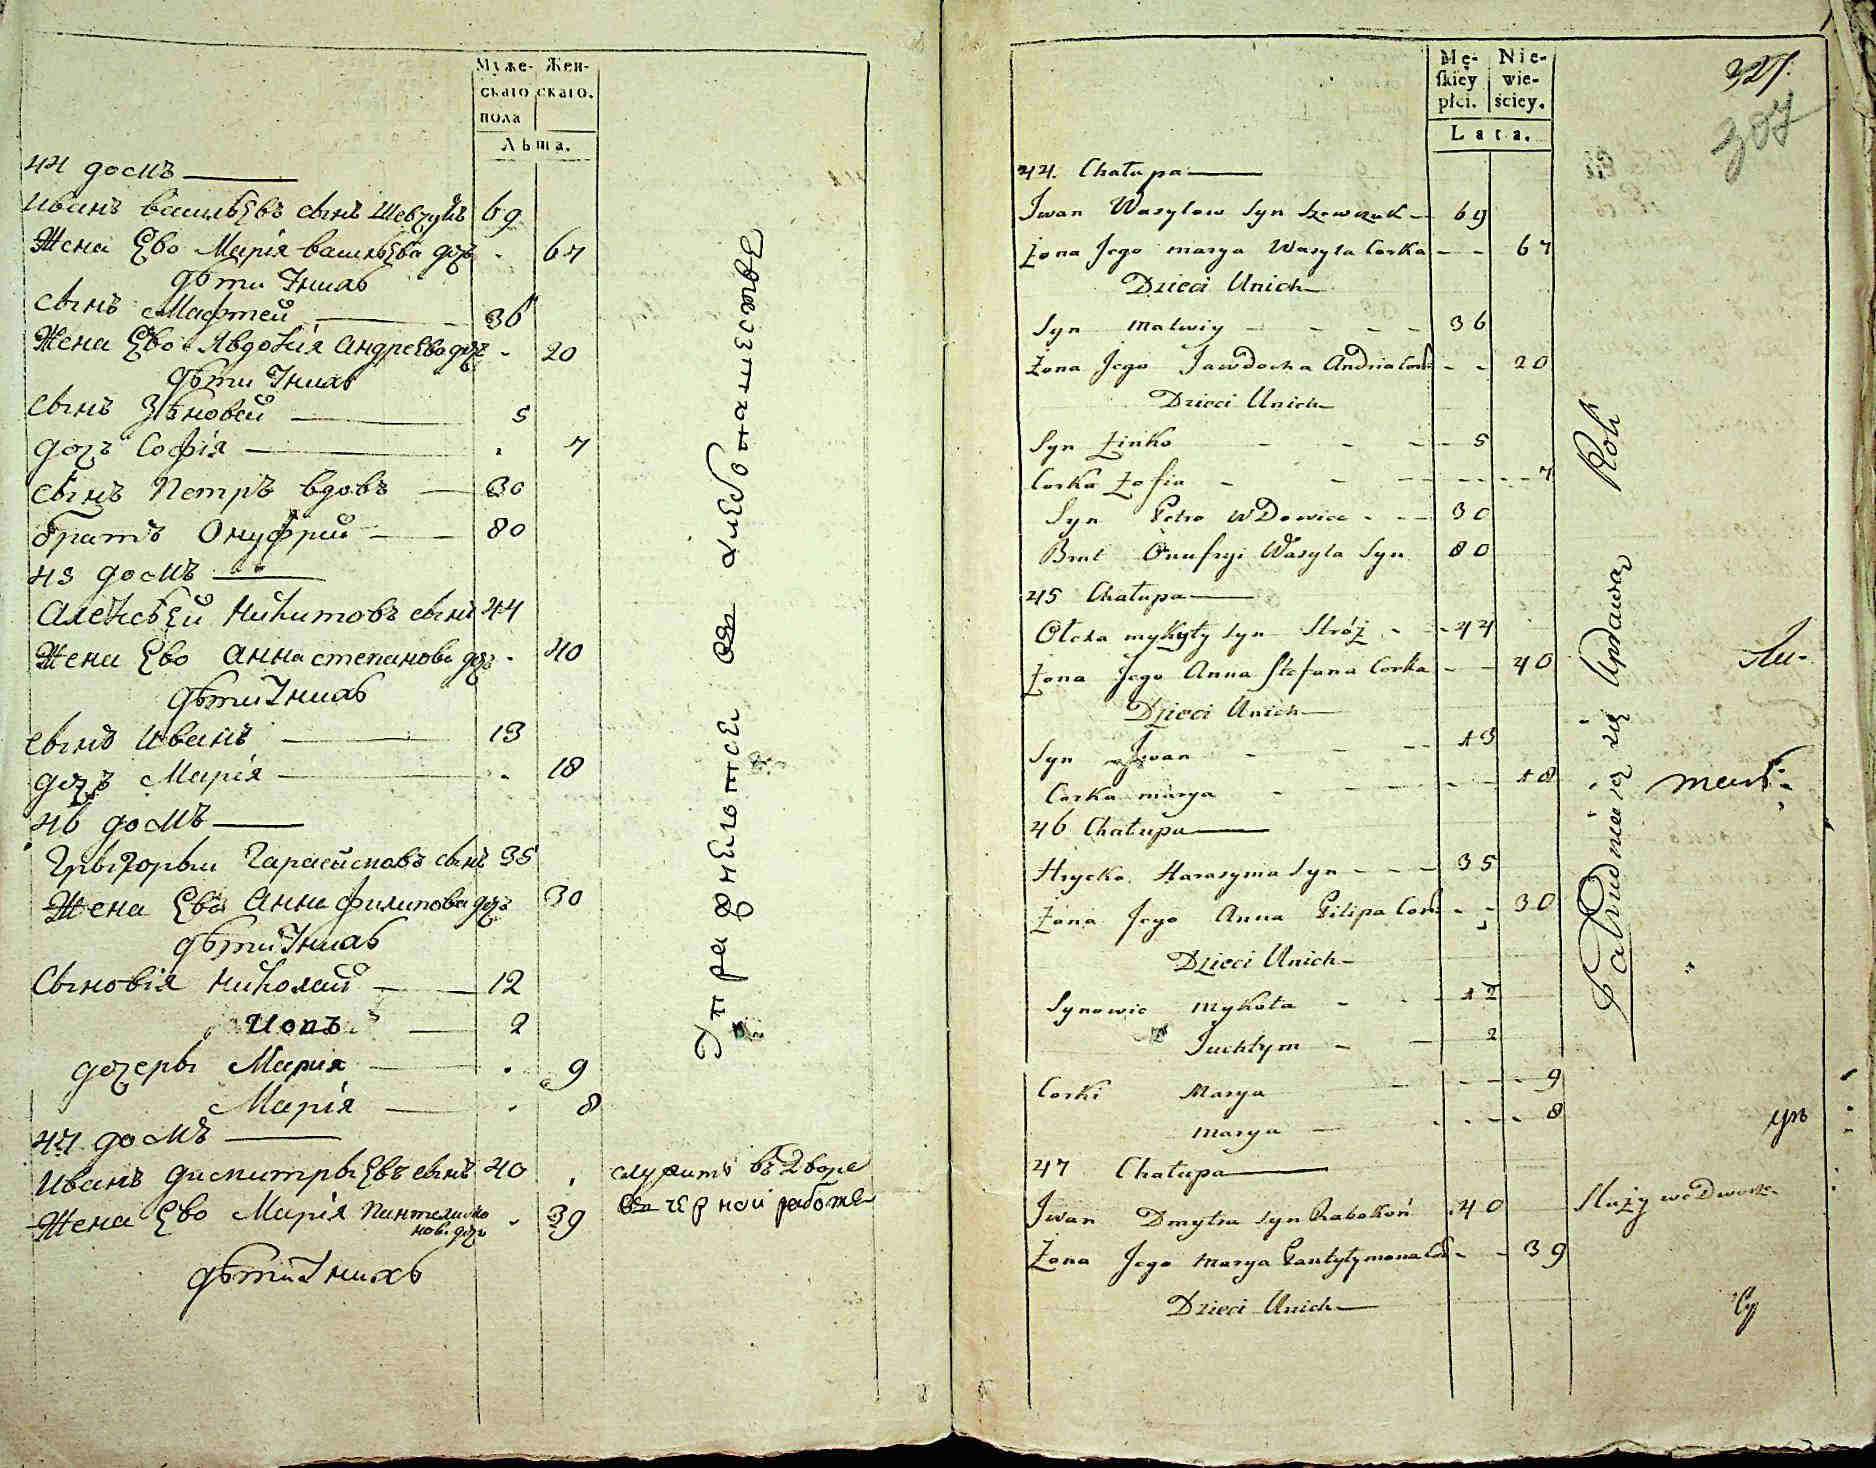 Муже- Жен-
скаго скаго.
пола
Лѣта.
44 домъ
Иванъ васильевъ сынъ Шевчукъ 69
Жена Ево Марія васильева дочь 67
дѣти Унихъ
сынъ Мафтей 36
Жена Ево Авдокія андреева дочь 20
дѣти Унихъ
сынъ Зѣновей 5
дочь Софія 7
сынъ Петръ вдовъ 30
братъ Онуфрий 80
45 домъ
Алексѣей Никитовъ сынъ 44
Жена Ево анна степанова дочь 40
дѣти Унихъ
сынъ Иванъ 13
дочь Марія 18
46 домъ
Григорый Гарасимовъ сынъ 35
Жена Ево Анна филипова дочь 30
дѣти Унихъ
Сыновія Николай 12
2
дочеры Марія 9
Марія 8
47 домъ
Иванъ дмитрыевъ сынъ 40
Жена Ево Марія Пантелимо
нова дочь 39
дѣти Унихъ
Упражняются въ хлебопашестве
служитъ въ Дворе
въ черной работе
Mę- Nie-
skiey wie-
płci. ściey.
Lata.
327.
307
44. Chałupa
Iwan Wasylow Syn Szewczuk 69
Żona Jego marya Wasyla Corka 67
Dzieci Unich
Syn matwiy 36
Żona Jego Jawdocha Andria Cork 20
Dzieci Unich
Syn Zinko 5
Corka Zofia 7
Syn Petro wDowiec 30
Brat Onufryi Wasyla Syn 80
45 Chałupa
Olexa mykyty Syn Stróż 44
Żona Jego Anna Stefana Corka 40
Dzieci Unich
Syn Iwan 13
Corka marya 18
46 Chałupa
Hrycko Harasyma Syn 35
Żona Jego Anna Pilipa Cork 30
Dzieci Unich
Synowie mykoła 12
Juchtym 2
Corki Marya 9
marya 8
47 Chałupa
Iwan Dmytra Syn Rabokoń 40
Żona Jego marya Pantylymona Cor 39
Dzieci Unich
Zatrudniaią się Uprawą Roli
Służy we Dworze